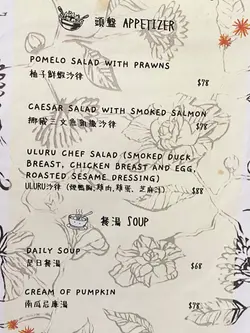 頭盤 APPETIZER
POMELO SALAD WITH PRAWNS
柚子鮮蝦沙律
$78
CAESAR SALAD WITH SMOKED SALMON
挪威三文魚凱撒沙律
$78
ULURU CHEF SALAD (SMOKED DUCK
BREAST, CHICKEN BREAST AND EGG,
ROASTED SESAME DRESSING)
ULURU沙律 (煙鴨胸,雞肉,雞蛋, 芝麻汁)
$88
餐湯 SOUP
DAILY SOUP
是日餐湯
$68
CREAM OF PUMPKIN
南瓜忌廉湯
$78